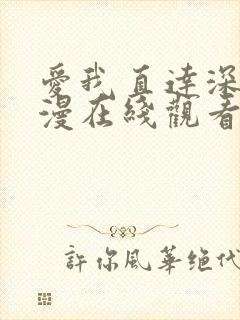 愛我直達深
漫在綫觀看
許你風華绝代